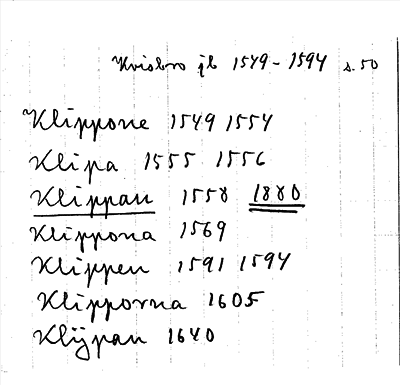 Kviobro jb 1549-1594 s. 50
Klippone 1549 1554
Klipa 1555 1556
Klippan 1558 1880
Klippona 1569
Klippen 1591 1594
Klipporna 1605
Klijpan 1640